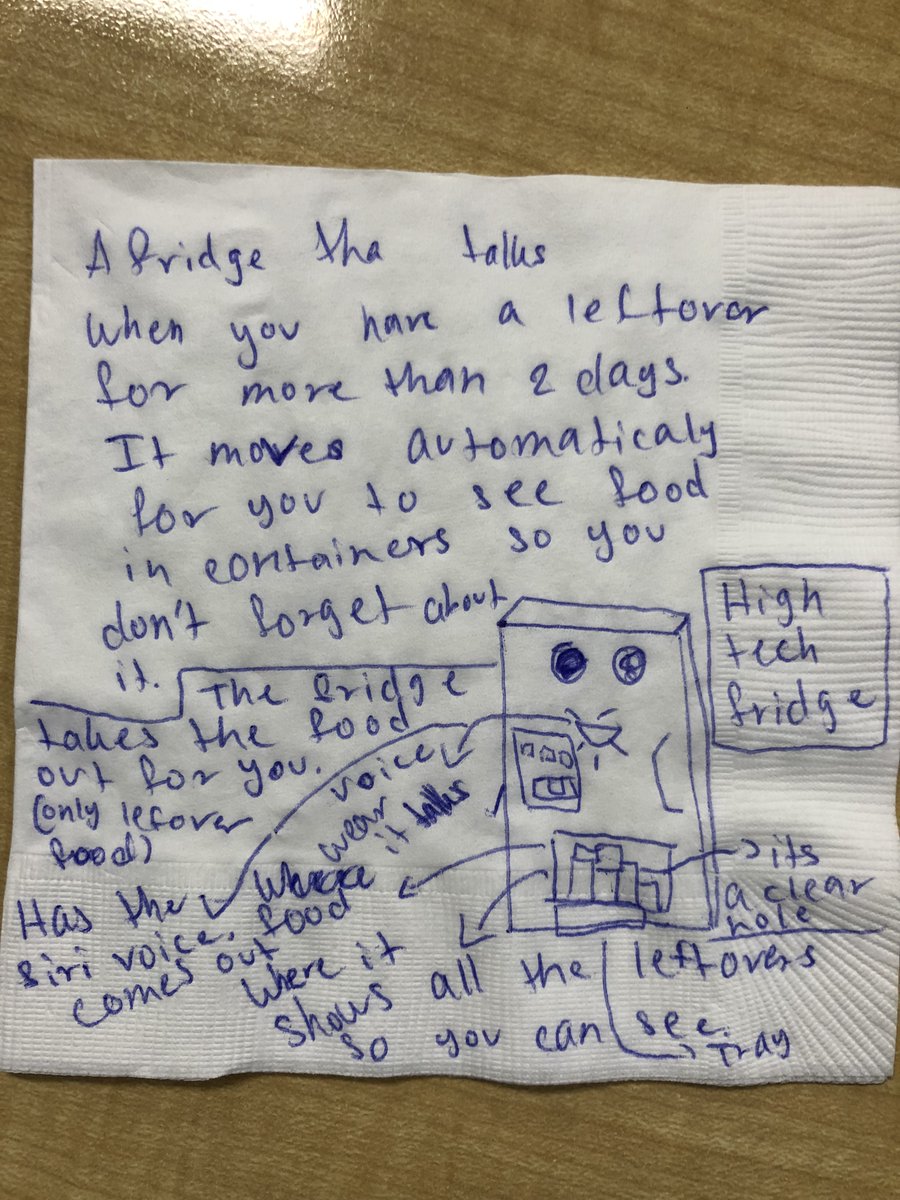 A fridge tha talks
when you have a leftover
for more than 2 days.
It moves automaticaly
for you to see food
in containers so you
don't forget about
it.
High
tech
fridge
The fridge
takes the food
out for you.
(only lefover
food)
voice
wear
it talks
Has the
siri voice.
Where
food
comes out
its
a clear
hole
Where it
shows all the leftovers
so you can see.
Tray